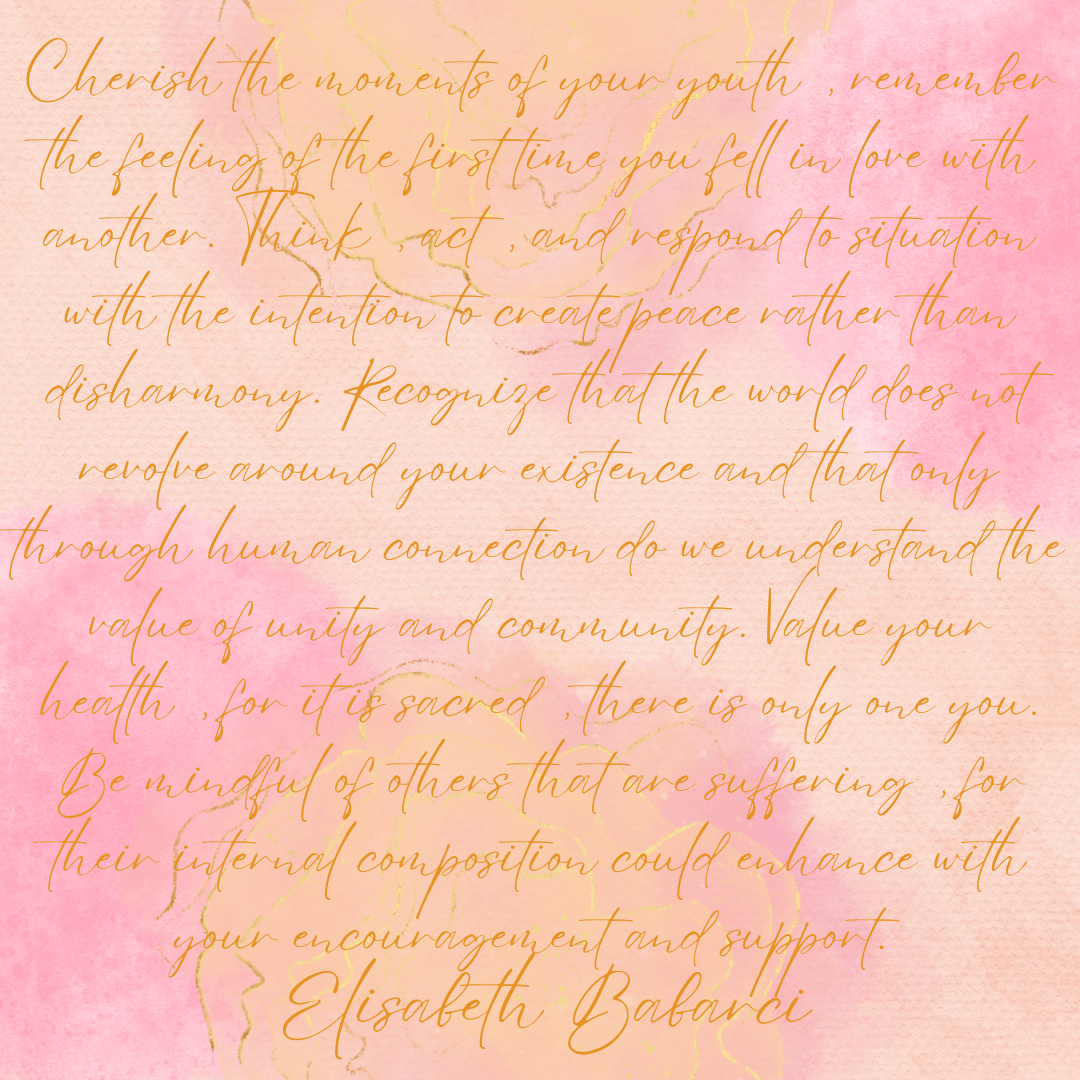 Cherish the moments of your youth , remember
the feeling of the first time you fell in love with
another. Think , act , and respond to situation
with the intention to create peace rather than
disharmony. Recognize that the world does not
revolve around your existence and that only
through human connection do we understand the
value of unity and community. Value your
health , for it is sacred , there is only one you.
Be mindful of others that are suffering , for
their internal composition could enhance with
your encouragement and support.
Elisabeth Babarci